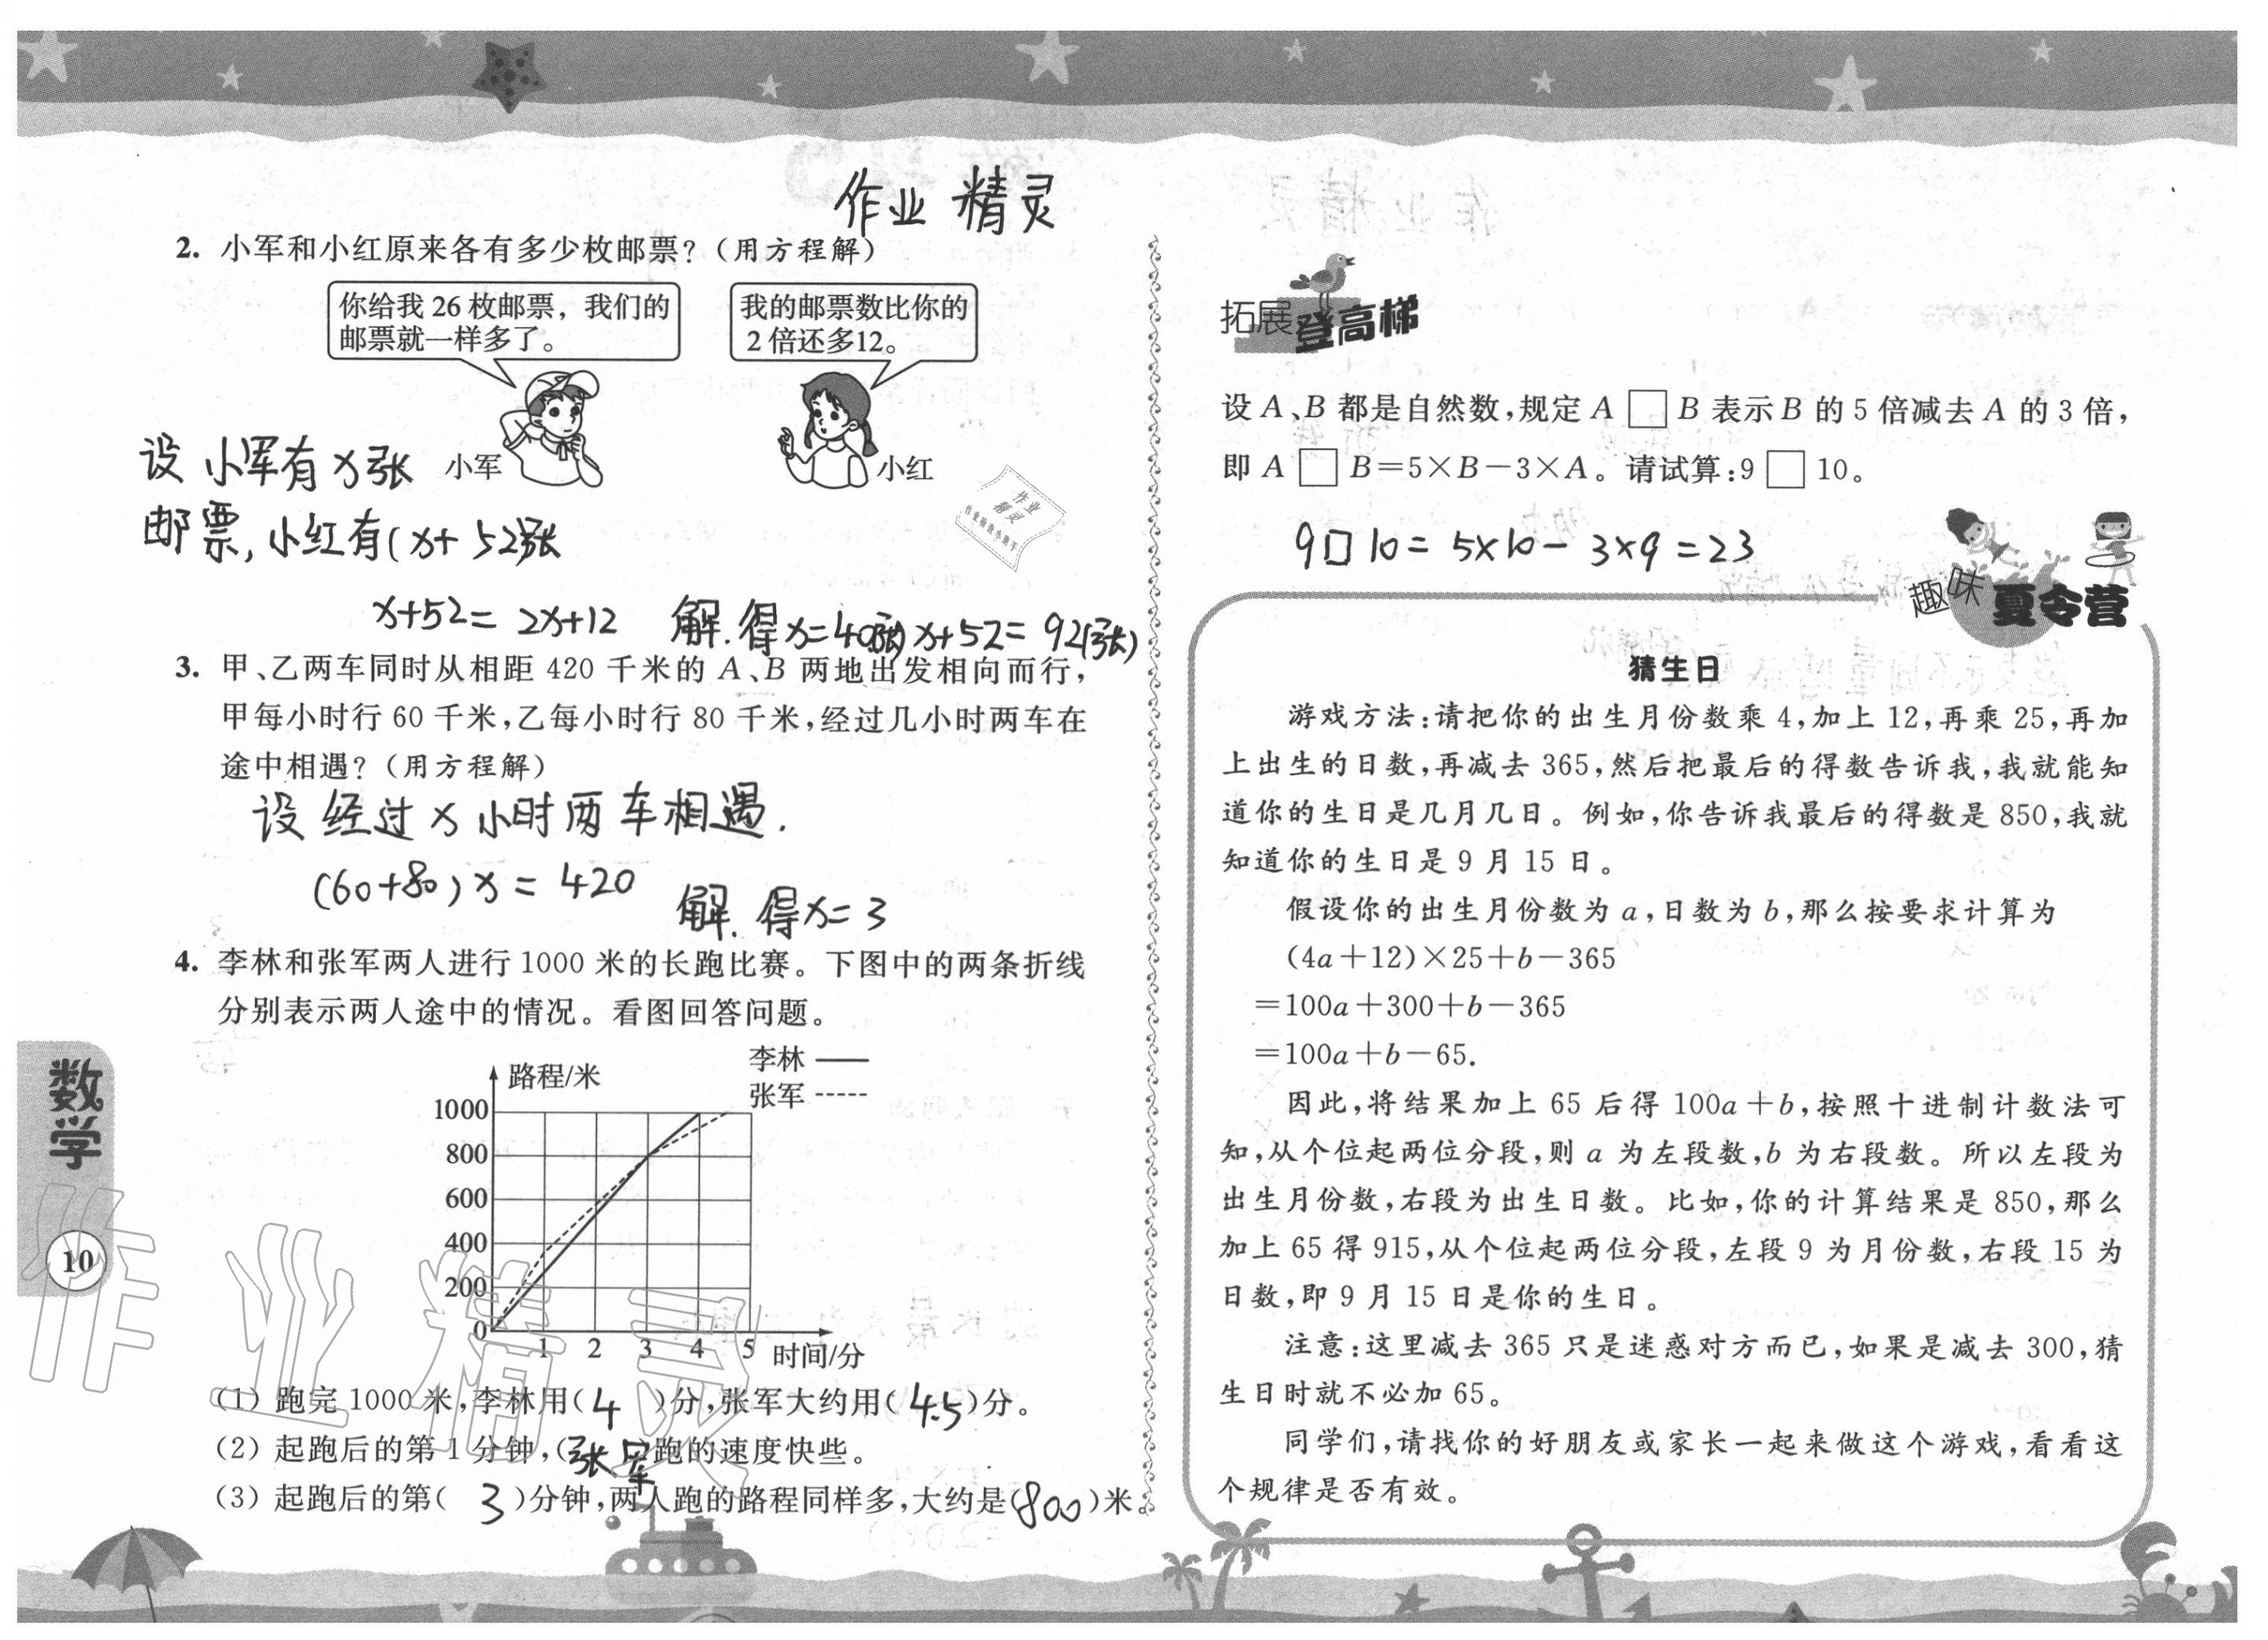 作业 精灵
2. 小军和小红原来各有多少枚邮票?(用方程解)
你给我 26 枚邮票，我们的
邮票就一样多了。
我的邮票数比你的
2 倍还多12。
小军
小红
设 小军有 x 张
邮票, 小红有(x+52)张
x+52= 2x+12 解.得x=40(张) x+52= 92(张)
3. 甲、乙两车同时从相距 420 千米的 A、B 两地出发相向而行,
甲每小时行 60 千米,乙每小时行 80 千米,经过几小时两车在
途中相遇?(用方程解)
设 经过 x 小时两车相遇.
(60+80)x = 420 解. 得x= 3
4. 李林和张军两人进行 1000 米的长跑比赛。下图中的两条折线
分别表示两人途中的情况。看图回答问题。
李林
张军
路程/米
1000
800
600
400
200
0
1 2 3 4 5 时间/分
(1) 跑完 1000 米,李林用( 4 )分,张军大约用( 4.5 )分。
(2) 起跑后的第 1 分钟,(张军)跑的速度快些。
(3) 起跑后的第( 3 )分钟,两人跑的路程同样多,大约是(800)米。
数学
10
作业精灵
拓展登高梯
设 A、B 都是自然数,规定 A □ B 表示 B 的 5 倍减去 A 的 3 倍,
即 A □ B=5×B-3×A。请试算:9 □ 10。
9□10= 5×10- 3×9 =23
趣味夏令营
猜生日
游戏方法:请把你的出生月份数乘 4,加上 12,再乘 25,再加
上出生的日数,再减去 365,然后把最后的得数告诉我,我就能知
道你的生日是几月几日。例如,你告诉我最后的得数是 850,我就
知道你的生日是 9 月 15 日。
假设你的出生月份数为 a,日数为 b,那么按要求计算为
(4a+12)×25+b-365
=100a+300+b-365
=100a+b-65.
因此,将结果加上 65 后得 100a+b,按照十进制计数法可
知,从个位起两位分段,则 a 为左段数,b 为右段数。所以左段为
出生月份数,右段为出生日数。比如,你的计算结果是 850,那么
加上 65 得 915,从个位起两位分段,左段 9 为月份数,右段 15 为
日数,即 9 月 15 日是你的生日。
注意:这里减去 365 只是迷惑对方而已,如果是减去 300,猜
生日时就不必加 65。
同学们,请找你的好朋友或家长一起来做这个游戏,看看这
个规律是否有效。